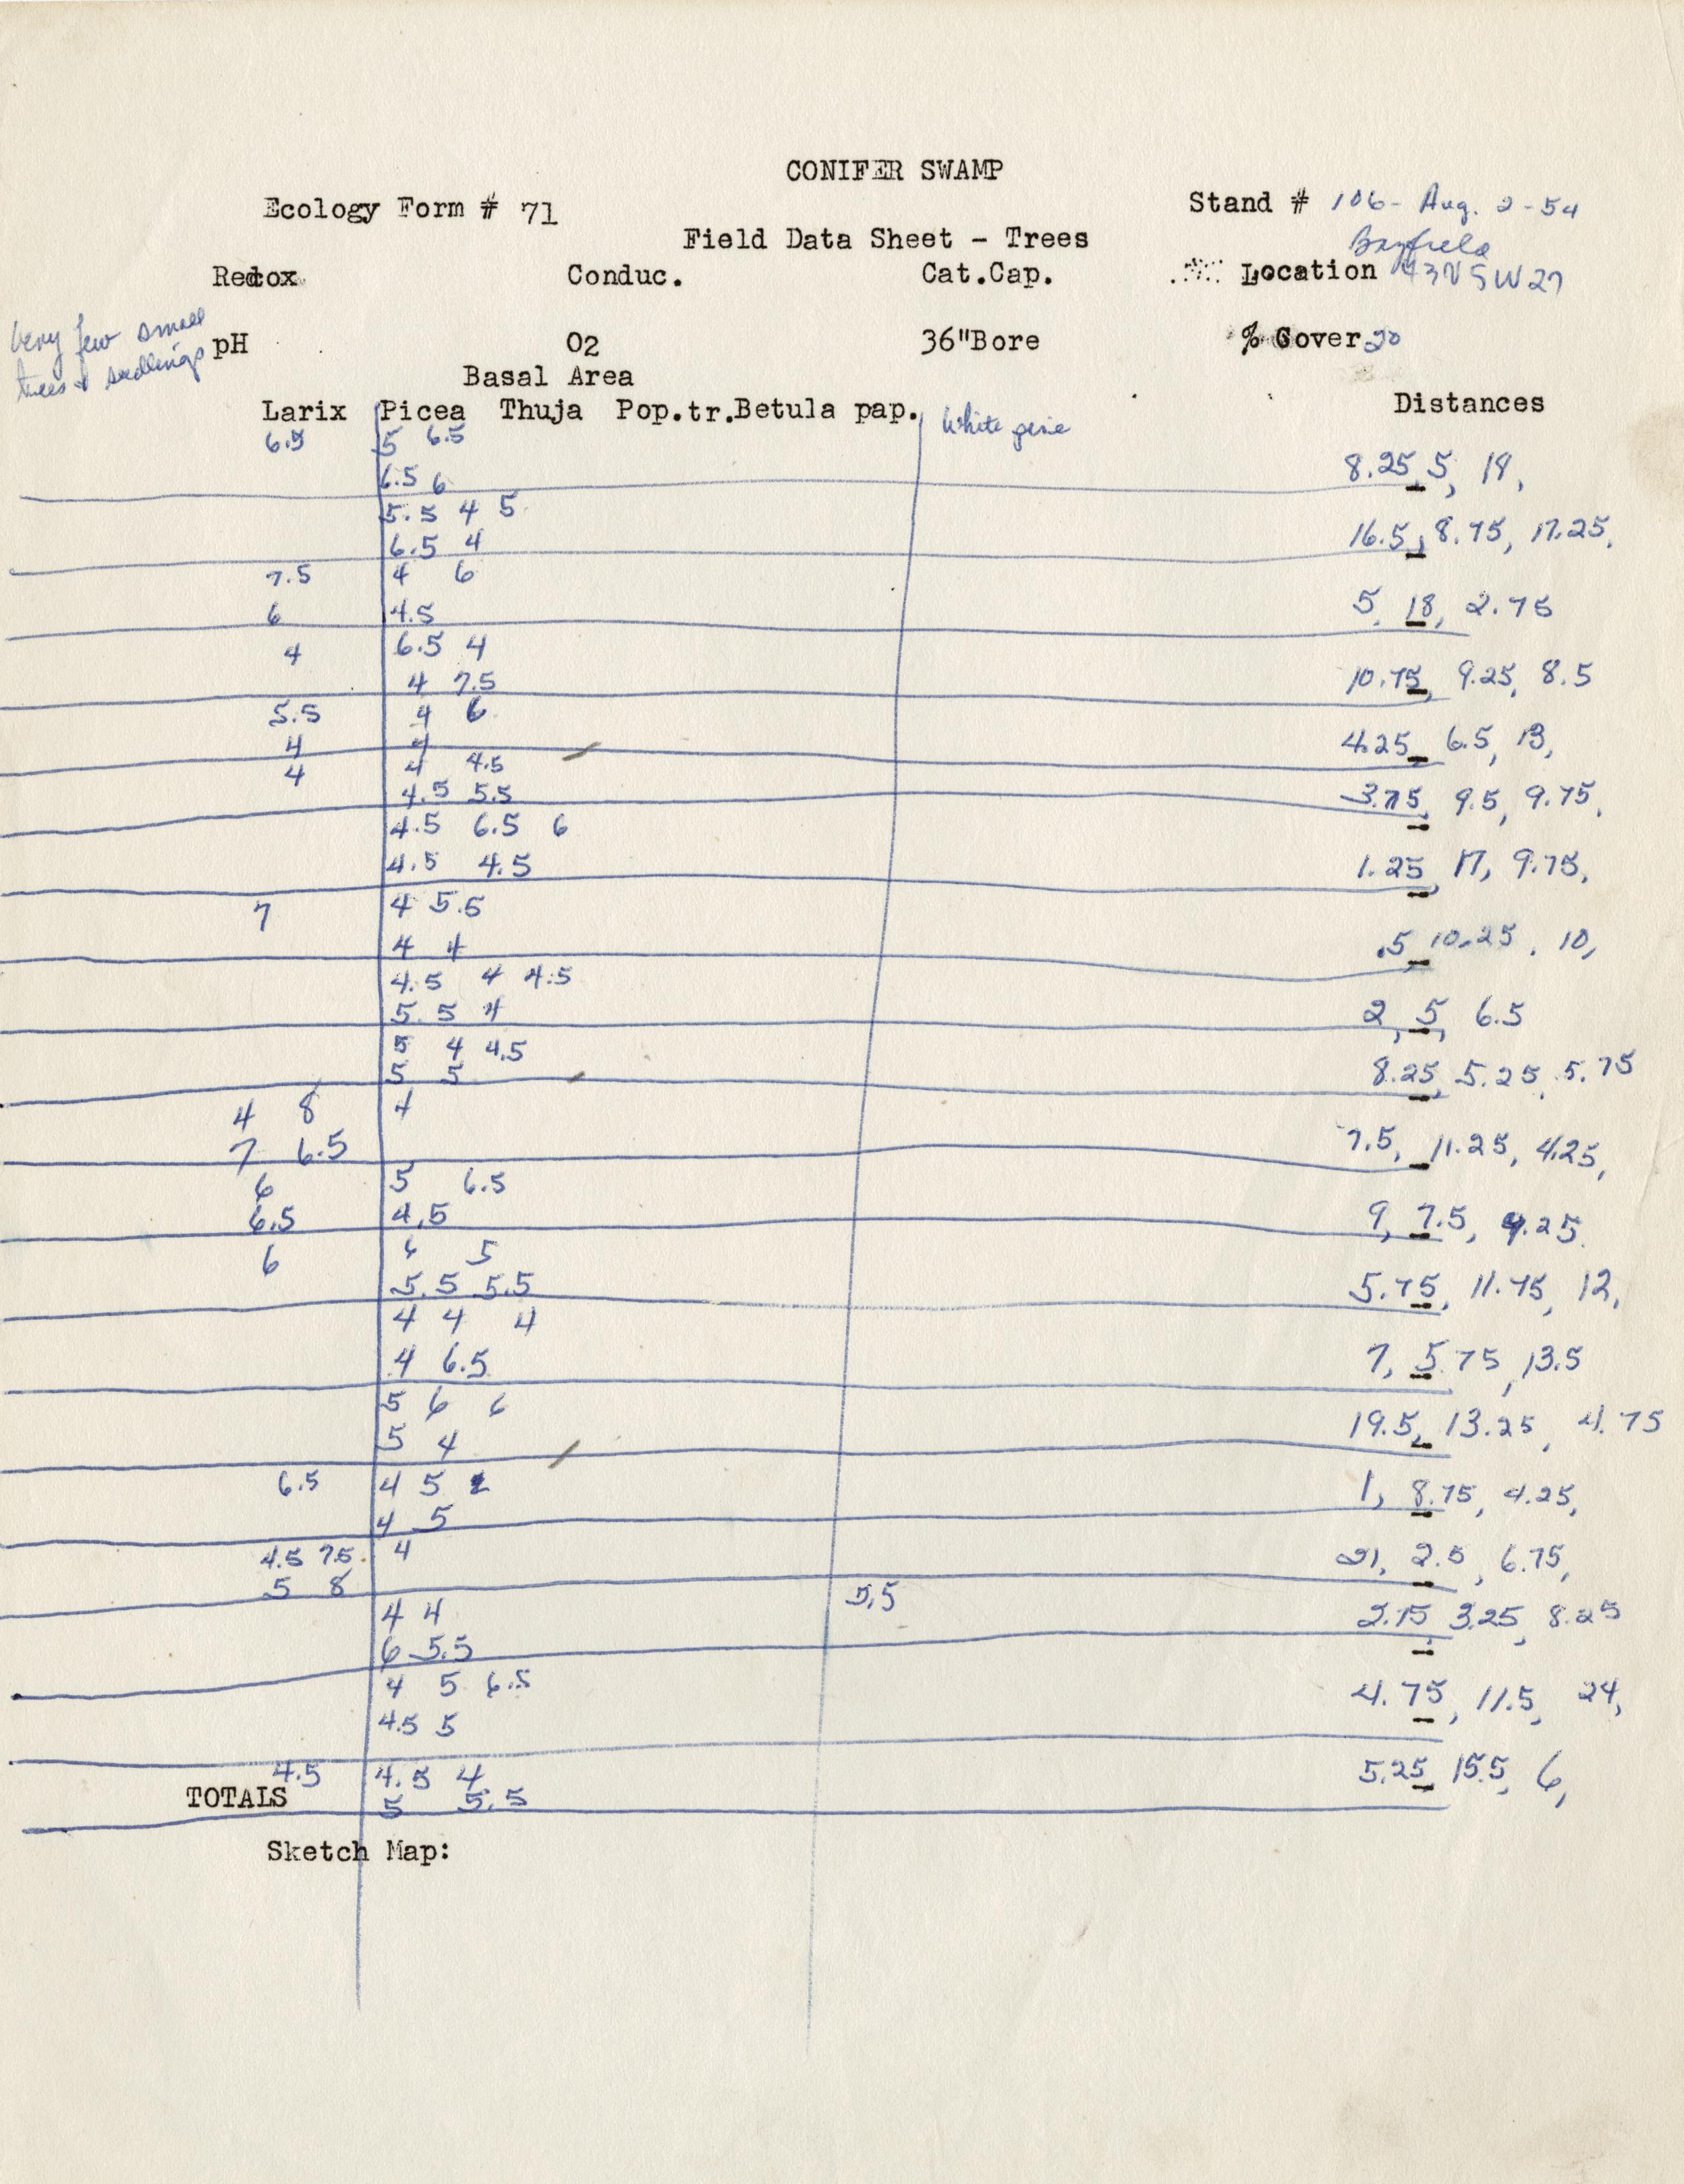 CONIFER SWAMP
Ecology Form # 71 Stand # 106- Aug. 2-54
Field Data Sheet - Trees Bayfield
Redox Conduc. Cat.Cap. Location 43N5W27
Very few small
trees & seedlings
pH O2 36"Bore % Cover 20
Basal Area
Larix Picea Thuja Pop.tr. Betula pap. White pine Distances
6.5 5 6.5
6.5 6 8.25, 5, 19,
5.5 4 5
6.5 4 16.5, 8.75, 17.25,
7.5 4 6
6 4.5 5, 18, 2.75
4 6.5 4
4 7.5 10.75, 9.25, 8.5
5.5 4 6
4 4 4.25, 6.5, 13,
4 4 4.5
4.5 5.5 3.75, 9.5, 9.75,
4.5 6.5 6
4.5 4.5 1.25, 17, 9.75,
7 4 5.5
4 4 .5 10.25, 10,
4.5 4 4.5
5.5 4 2, 5, 6.5
5 4 4.5
5 5 8.25, 5.25, 5.75
4 8 4
7 6.5 7.5, 11.25, 4.25,
6 5 6.5
6.5 4.5 9, 7.5, 9.25.
6 6 5
5.5 5.5 5.75, 11.75, 12,
4 4 4
4 6.5 7, 5.75, 13.5
5 6 6
5 4 19.5, 13.25, 4.75
6.5 4 5
4 5 1, 8.75, 4.25,
4.5 7.5 4
5 8 21, 2.5, 6.75,
4 4 5.5
6 5.5 2.75, 3.25, 8.25
4 5 6.5
4.5 5 4.75, 11.5, 24,
4.5 4.5 4
TOTALS 5 5.5 5.25, 15.5, 6,
Sketch Map: